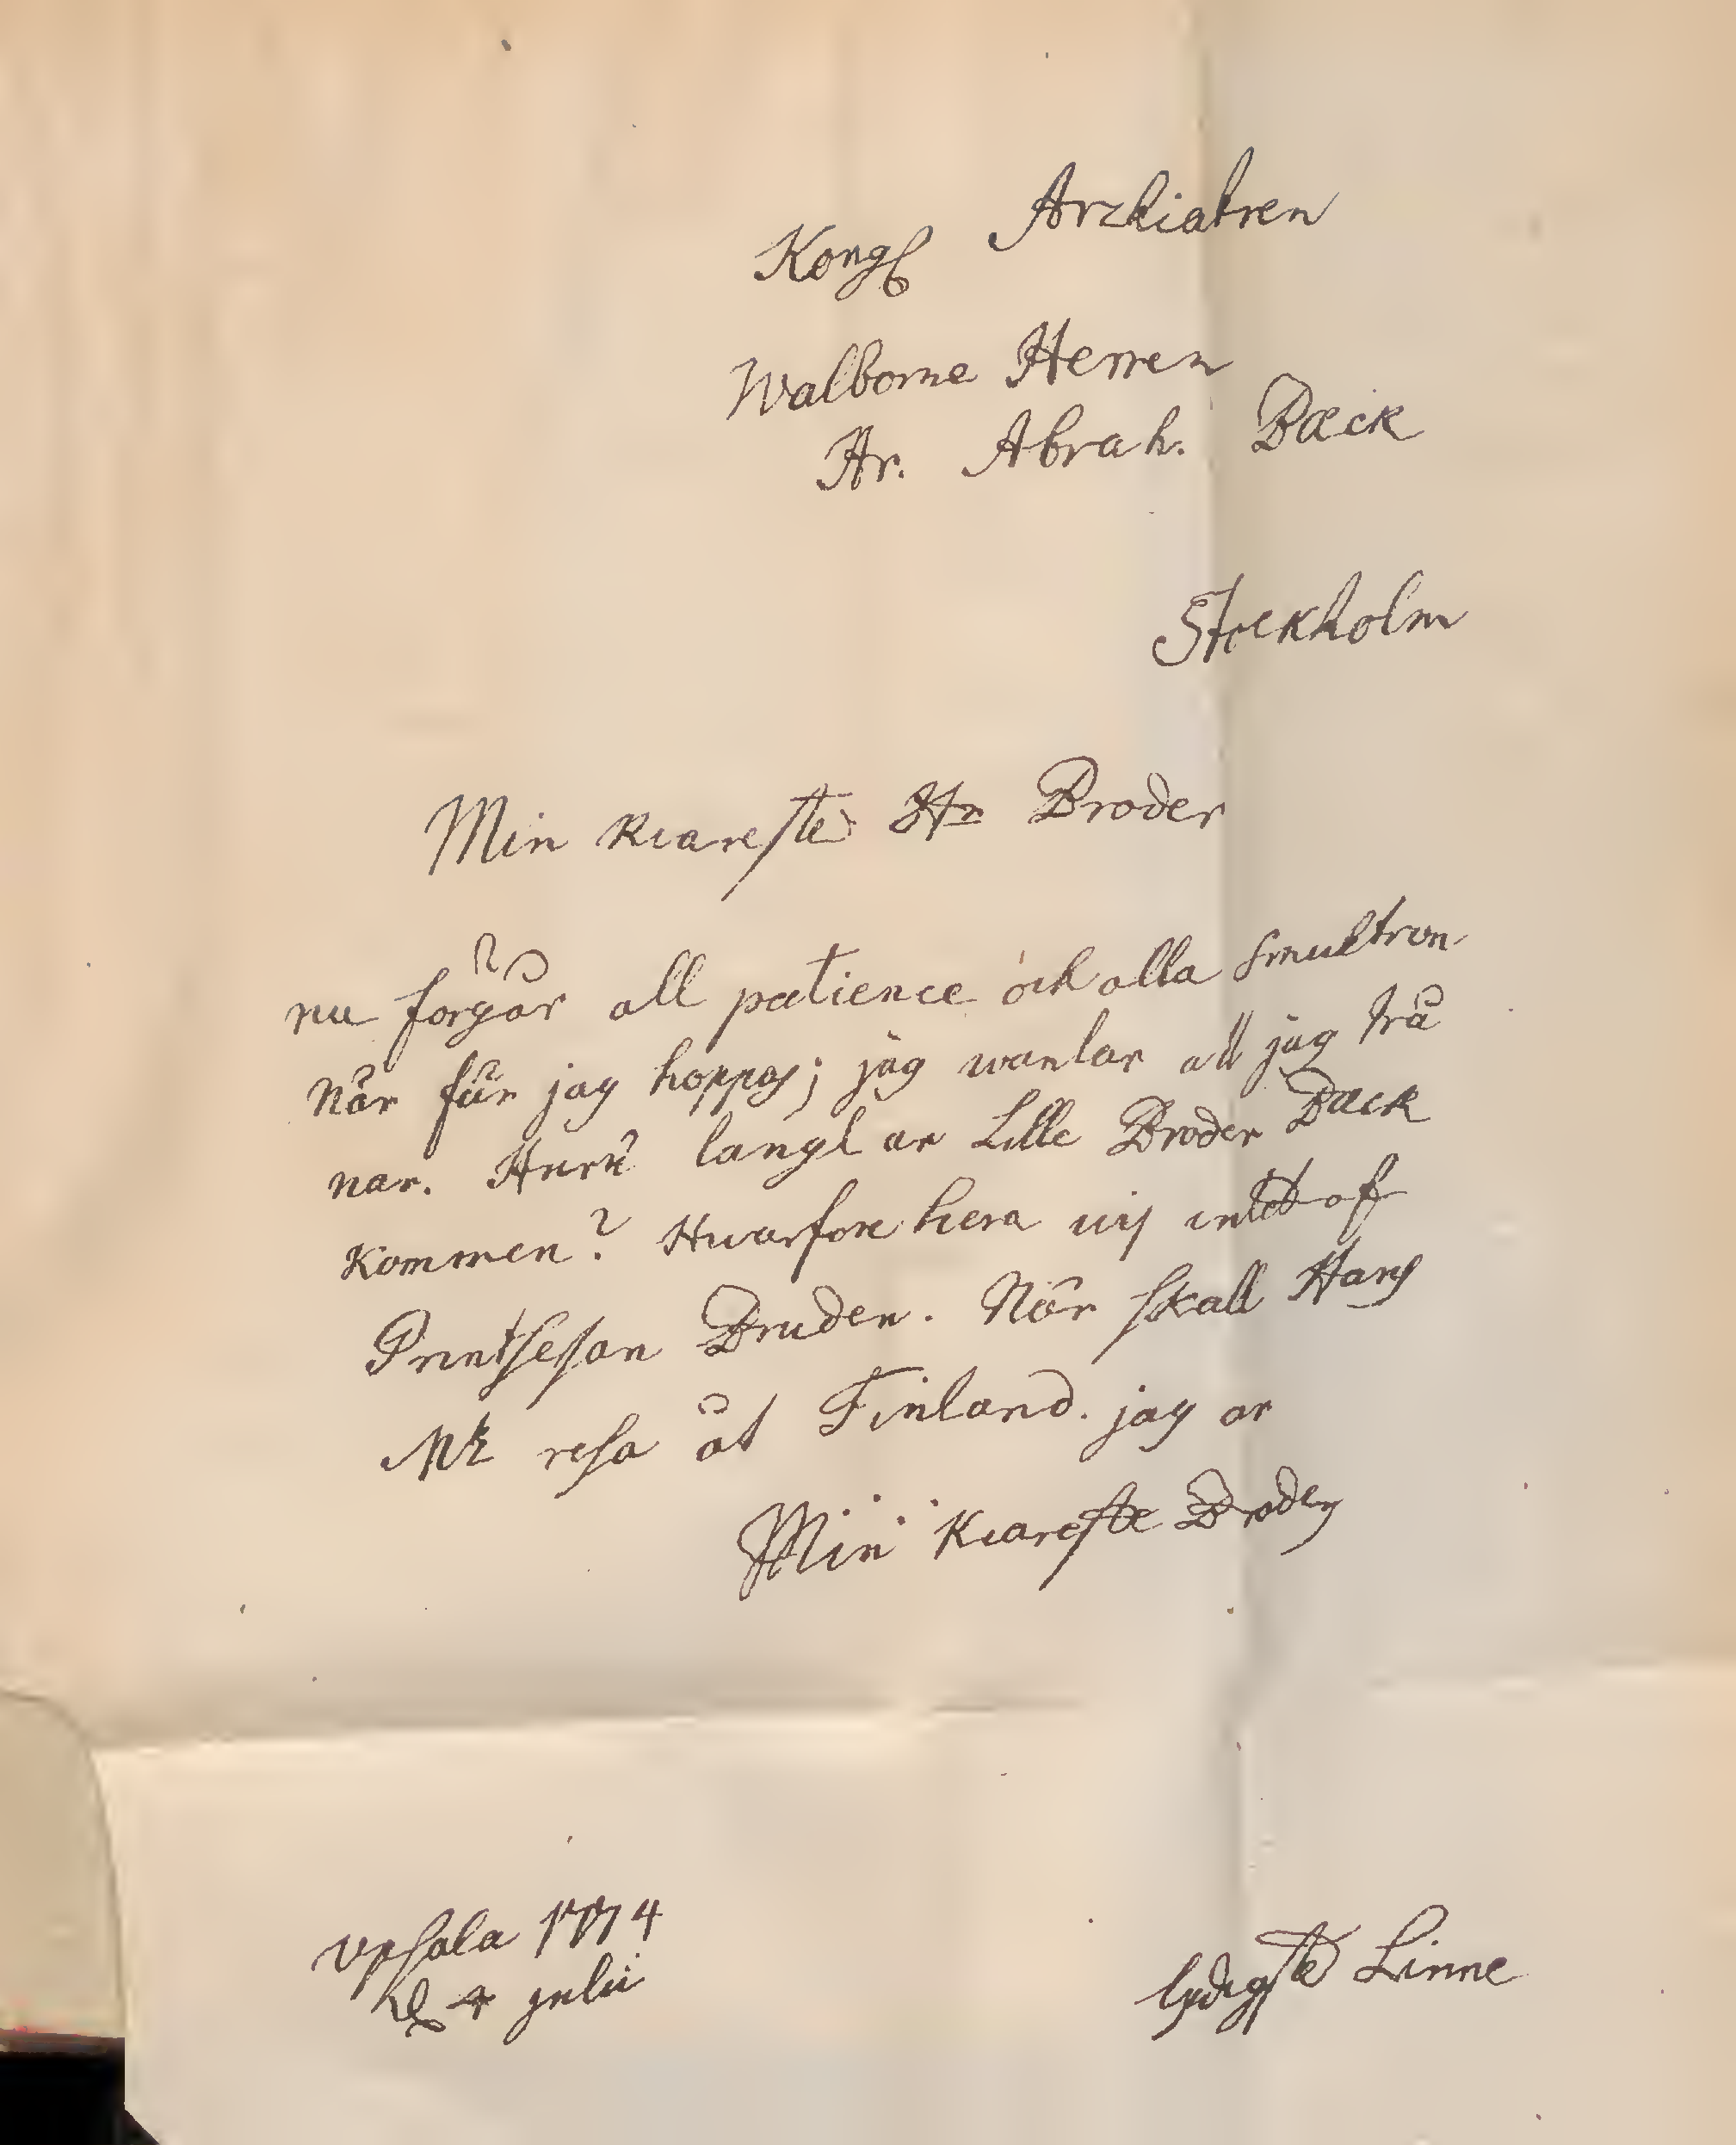 Kongl Archiatren
Walborne Herren
Hr. Abrah. Bæck
Stockholm
Min kiæreste Hr Broder
nu förgår all patience och alla smultron
När får jag hoppas; jag wäntar att jag trå
nar. Huru långt är Lille Broder Bæck
kommen? Hwarföre hera wij intet af
Printsessan Bruden. När skall Hans
Mt resa åt Finland. jag är
Min Kiæreste Broders
Upsala 1774
d 4 julii
lydigste Linne